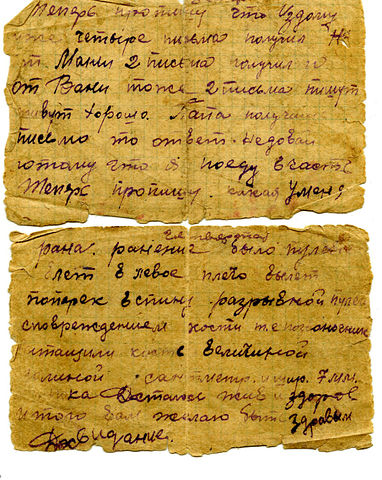 Теперь пропишу что Iздому
уже четыре письма получил На
от Мани 2 письма получил и
от Вани тоже 2 письма пишут
живут хорошо. Папа получишь
письмо то ответ недовай
потому что я поеду в часть
Теперь пропишу какая Уменя
рана. ранение было пулей
влет в левое плечо вылет
поперек в спину разрывной пулей
сповреждением кости
витащили кость величиной
длиной сантиметр и шир. 7 мм.
ка Остался жив и здоров
и того вам желаю быть здравым
Досвидание.